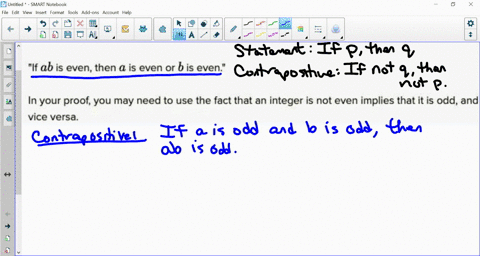 Untitled * - SMART Notebook
File Edit View Insert Format Tools Add-ons Account Help
Statement: If p, then q
"If ab is even, then a is even or b is even."
Contrapositive: If not q, then
not p.
In your proof, you may need to use the fact that an integer is not even implies that it is odd, and
vice versa.
Contrapositive: If a is odd and b is odd, then
ab is odd.